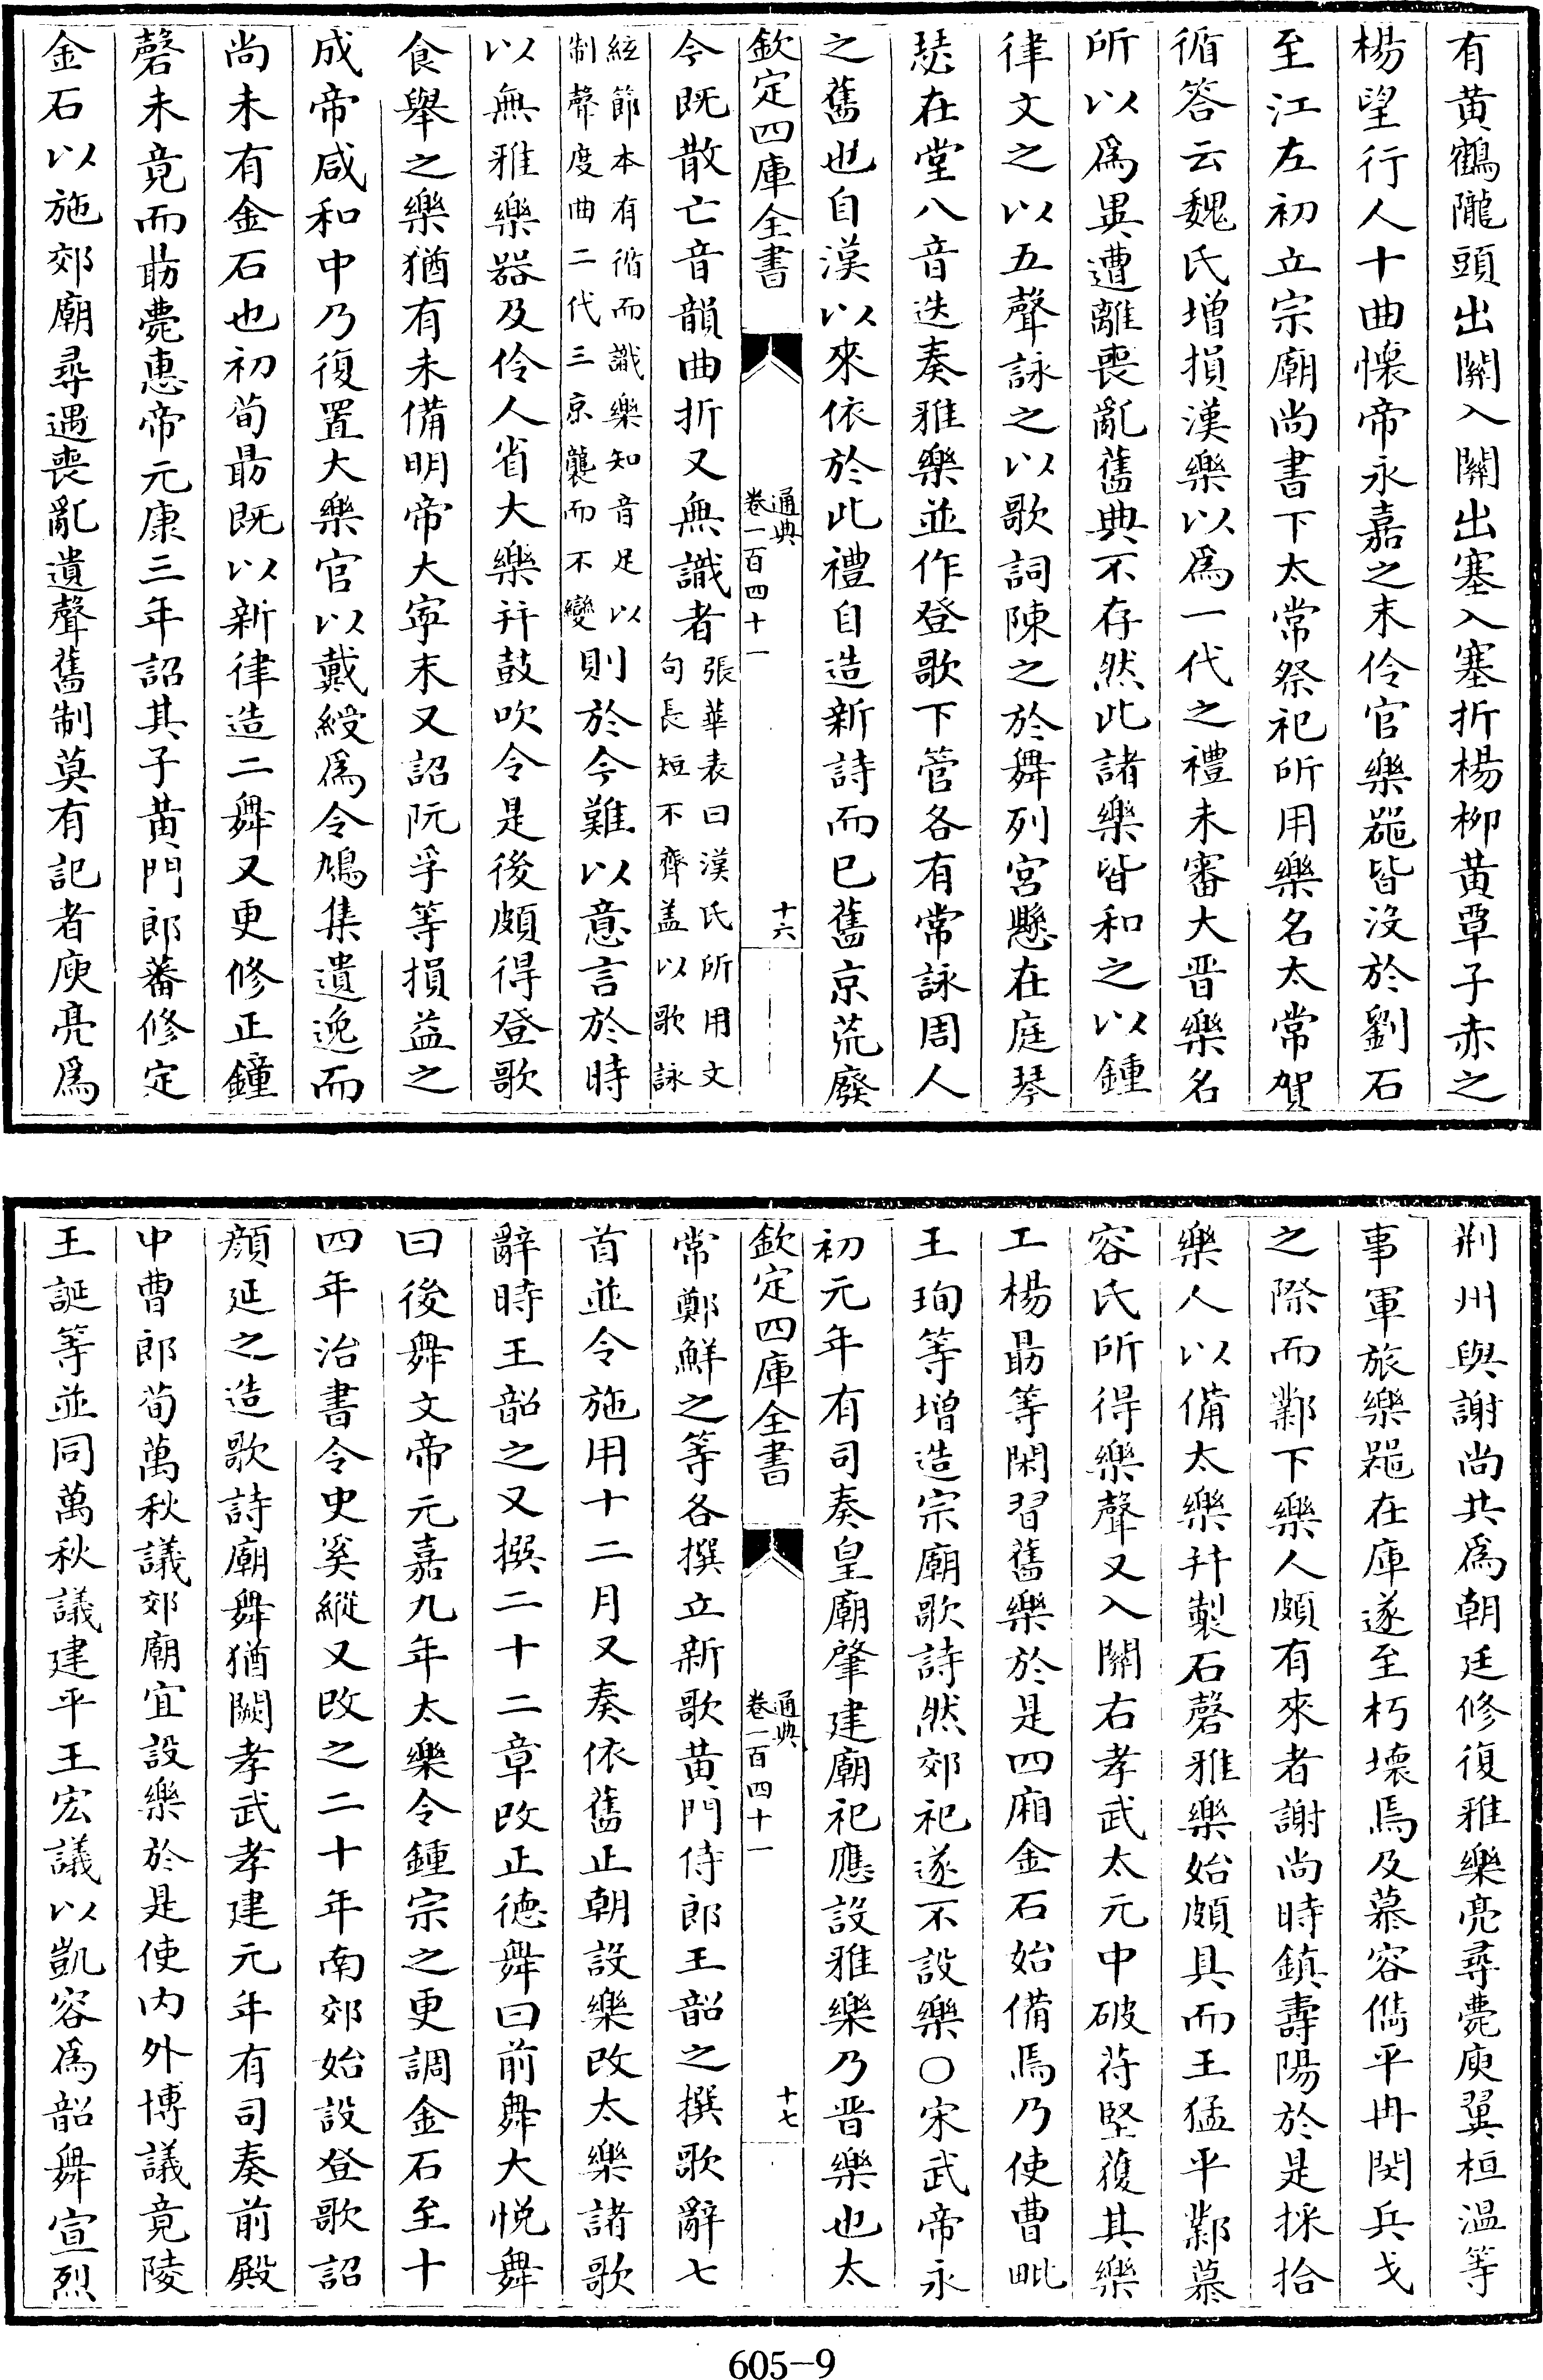 有黄鶴隴頭出關入關出塞入塞折楊柳黄覃子赤之
楊望行人十曲懐帝永嘉之末伶官樂噐皆沒於劉石
至江左初立宗廟尚書下太常祭祀所用樂名太常賀
循答云魏氏增損漢樂以為一代之禮未審大晋樂名
所以為異遭離喪亂舊典不存然此諸樂皆和之以鍾
律文之以五聲詠之以歌詞陳之於舞列宮懸在庭琴
瑟在堂八音迭奏雅樂並作登歌下管各有常詠周人
之舊也自漢以來依於此禮自造新詩而已舊京荒廢
欽定四庫全書
通典
卷一百四十一
十六
今既散亡音韻曲折又無識者張華表曰漢氏所用文
句長短不齊盖以歌詠
絃節本有循而識樂知音足以
制聲度曲二代三京襲而不變則於今難以意言於時
以無雅樂器及伶人省大樂并鼓吹令是後頗得登歌
食舉之樂猶有未備明帝大寧末又詔阮孚等損益之
成帝咸和中乃復置大樂官以戴綬為令鳩集遺逸而
尚未有金石也初荀勗既以新律造二舞又更修正鐘
磬未竟而勗薨惠帝元康三年詔其子黄門郎蕃修定
金石以施郊廟尋遇喪亂遺聲舊制莫有記者庾亮為
荆州與謝尚共為朝廷修復雅樂亮尋薨庾翼桓温等
事軍旅樂噐在庫遂至朽壊焉及慕容儁平冉閔兵戈
之際而鄴下樂人頗有來者謝尚時鎮壽陽於是採拾
樂人以備太樂并製石磬雅樂始頗具而王猛平鄴慕
容氏所得樂聲又入關右孝武太元中破苻堅獲其樂
工楊勗等閑習舊樂於是四廂金石始備焉乃使曹毗
王珣等增造宗廟歌詩然郊祀遂不設樂○宋武帝永
初元年有司奏皇廟肇建廟祀應設雅樂乃晋樂也太
欽定四庫全書
通典
卷一百四十一
十七
常鄭鮮之等各撰立新歌黄門侍郎王韶之撰歌辭七
首並令施用十二月又奏依舊正朝設樂改太樂諸歌
辭時王韶之又撰二十二章改正德舞曰前舞大悦舞
曰後舞文帝元嘉九年太樂令鍾宗之更調金石至十
四年治書令史奚縱又改之二十年南郊始設登歌詔
顔延之造歌詩廟舞猶闕孝武孝建元年有司奏前殿
中曹郎荀萬秋議郊廟宜設樂於是使内外博議竟陵
王誕等並同萬秋議建平王宏議以凱容為韶舞宣烈
605-9